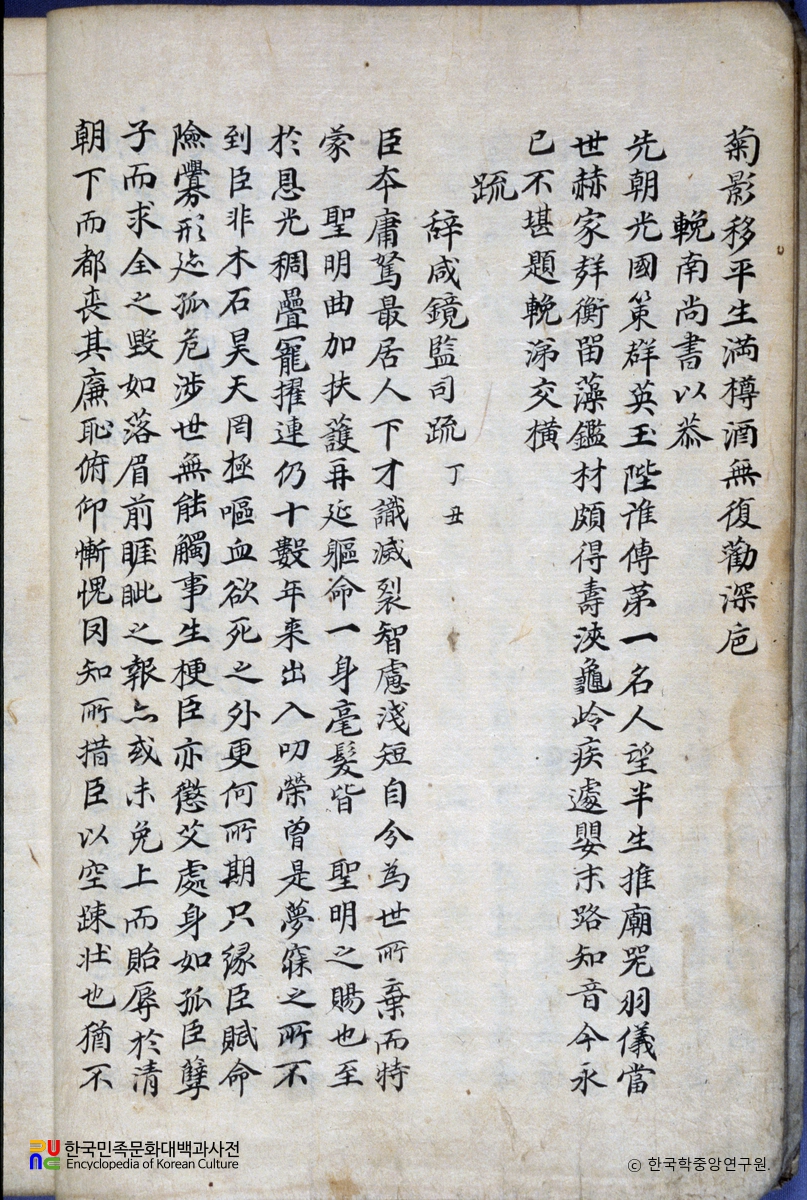 菊影移平生満樽酒無復勸深卮
輓南尚書以恭
先朝光國策群英玉陛淮傳苐一名人望半生推廟咒羽儀當
世赫家群衡留藻鑑材頗得壽浹龜岭疾遽嬰末路知音今永
已不堪題輓涕交横
疏
辞咸鏡監司疏 丁丑
臣夲庸駑最居人下才識滅裂智慮淺短自分為世所棄而特
蒙 聖明曲加扶護再延軀命一身毫髮皆 聖明之賜也至
於恩光稠疊寵擢連仍十數年来出入叨榮曽是夢寐之所不
到臣非木石昊天罔極嘔血欲死之外更何所期只縁臣賦命
險釁形迹孤危渉世無能觸事生梗臣亦懲艾處身如孤臣孽
子而求全之毀如落眉前睚眦之報亦或未免上而貽辱於清
朝下而都喪其廉恥俯仰慚愧罔知所措臣以空踈壮也猶不
한국민족문화대백과사전
Encyclopedia of Korean Culture
ⓒ 한국학중앙연구원.